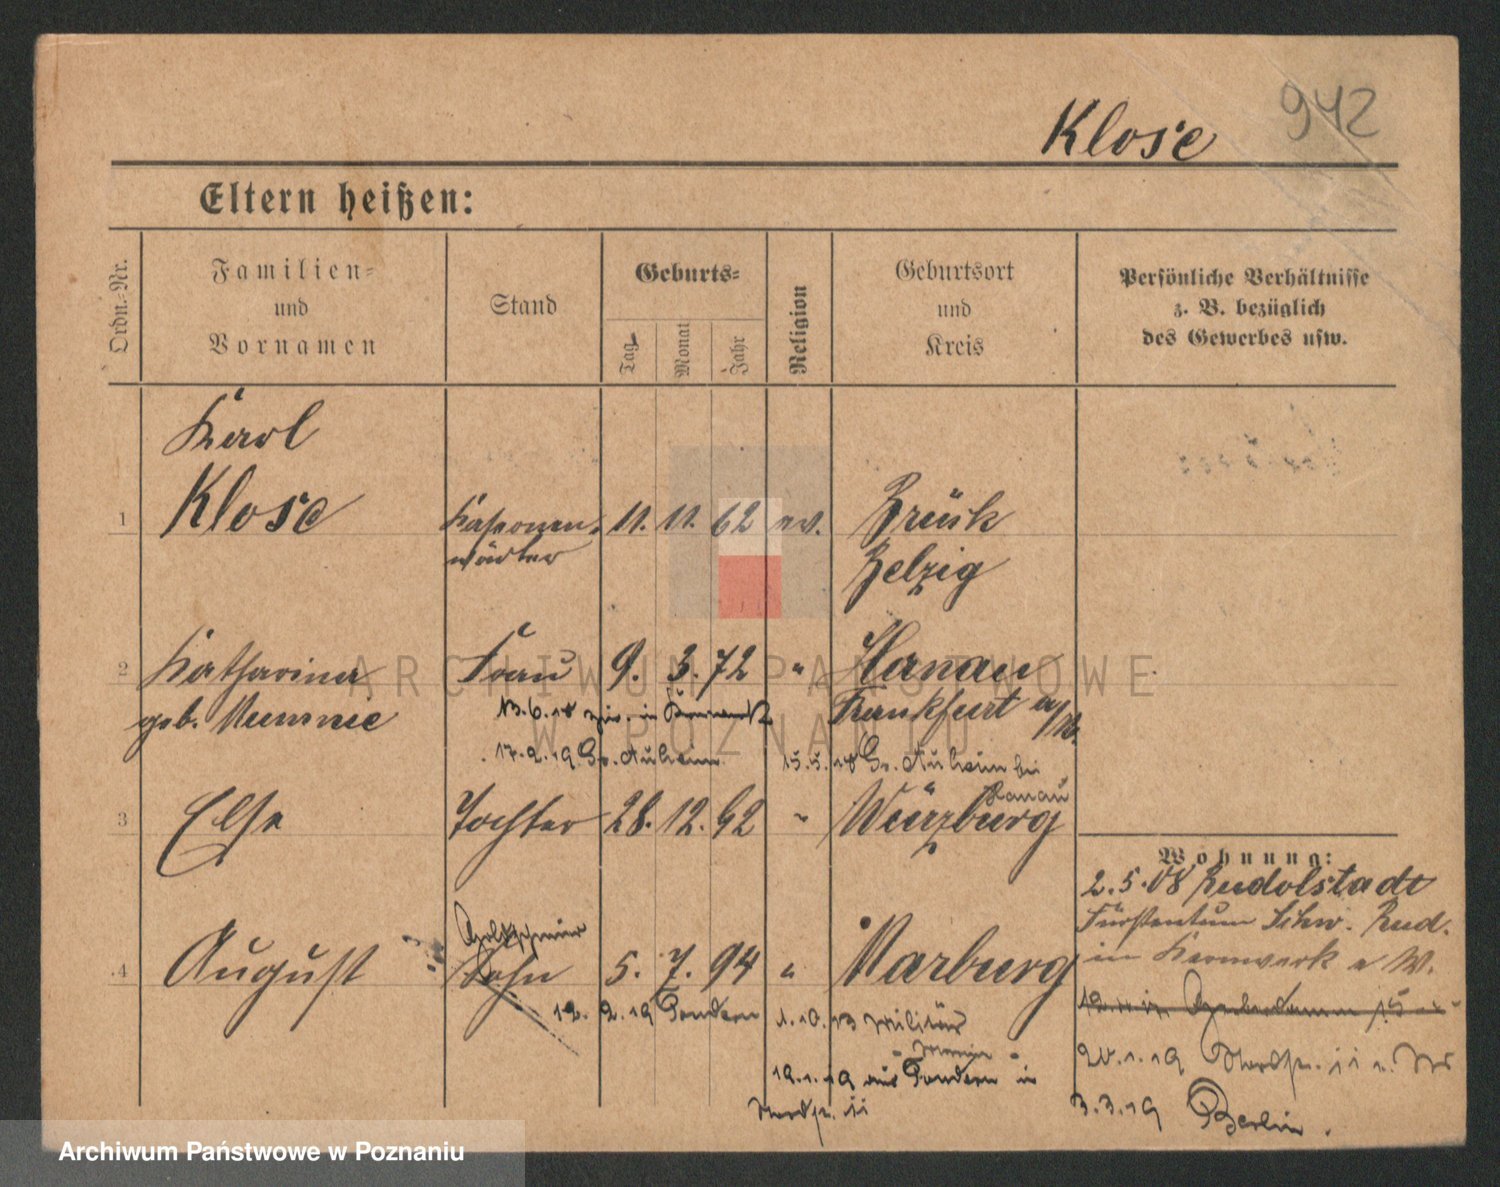 942
Klose
Eltern heißen:
Ordn.-Nr.
Familien-
und
Vornamen
Stand
Geburts-
Tag
Monat
Jahr
Religion
Geburtsort
und
Kreis
Persönliche Verhältnisse
z. B. bezüglich
des Gewerbes usw.
Karl
1 Klose Kasernen- 11. 11. 62 ev. Brück
wärter Belzig
2 Katharina Frau 9. 3. 72 " Hanau
geb. Mumme Frankfurt a/M.
13.6.18 zur. in
17.2.19 Gr. Auheim
15.5.18 Gr. Auheim bei
Hanau
3 Else Tochter 28. 12. 92 " Würzburg
Wohnung:
2.5.08 Rudolstadt
Fürstentum Schw. Rud.
in Kernwerk
4 August Sohn 5. 7. 94 " Marburg
12.2.19 Tondern
1.10.13 Militär
Marine
19.1.19 aus Tondern in
20.1.19
3.3.19 Berlin.
ARCHIWUM PAŃSTWOWE
W POZNANIU
Archiwum Państwowe w Poznaniu